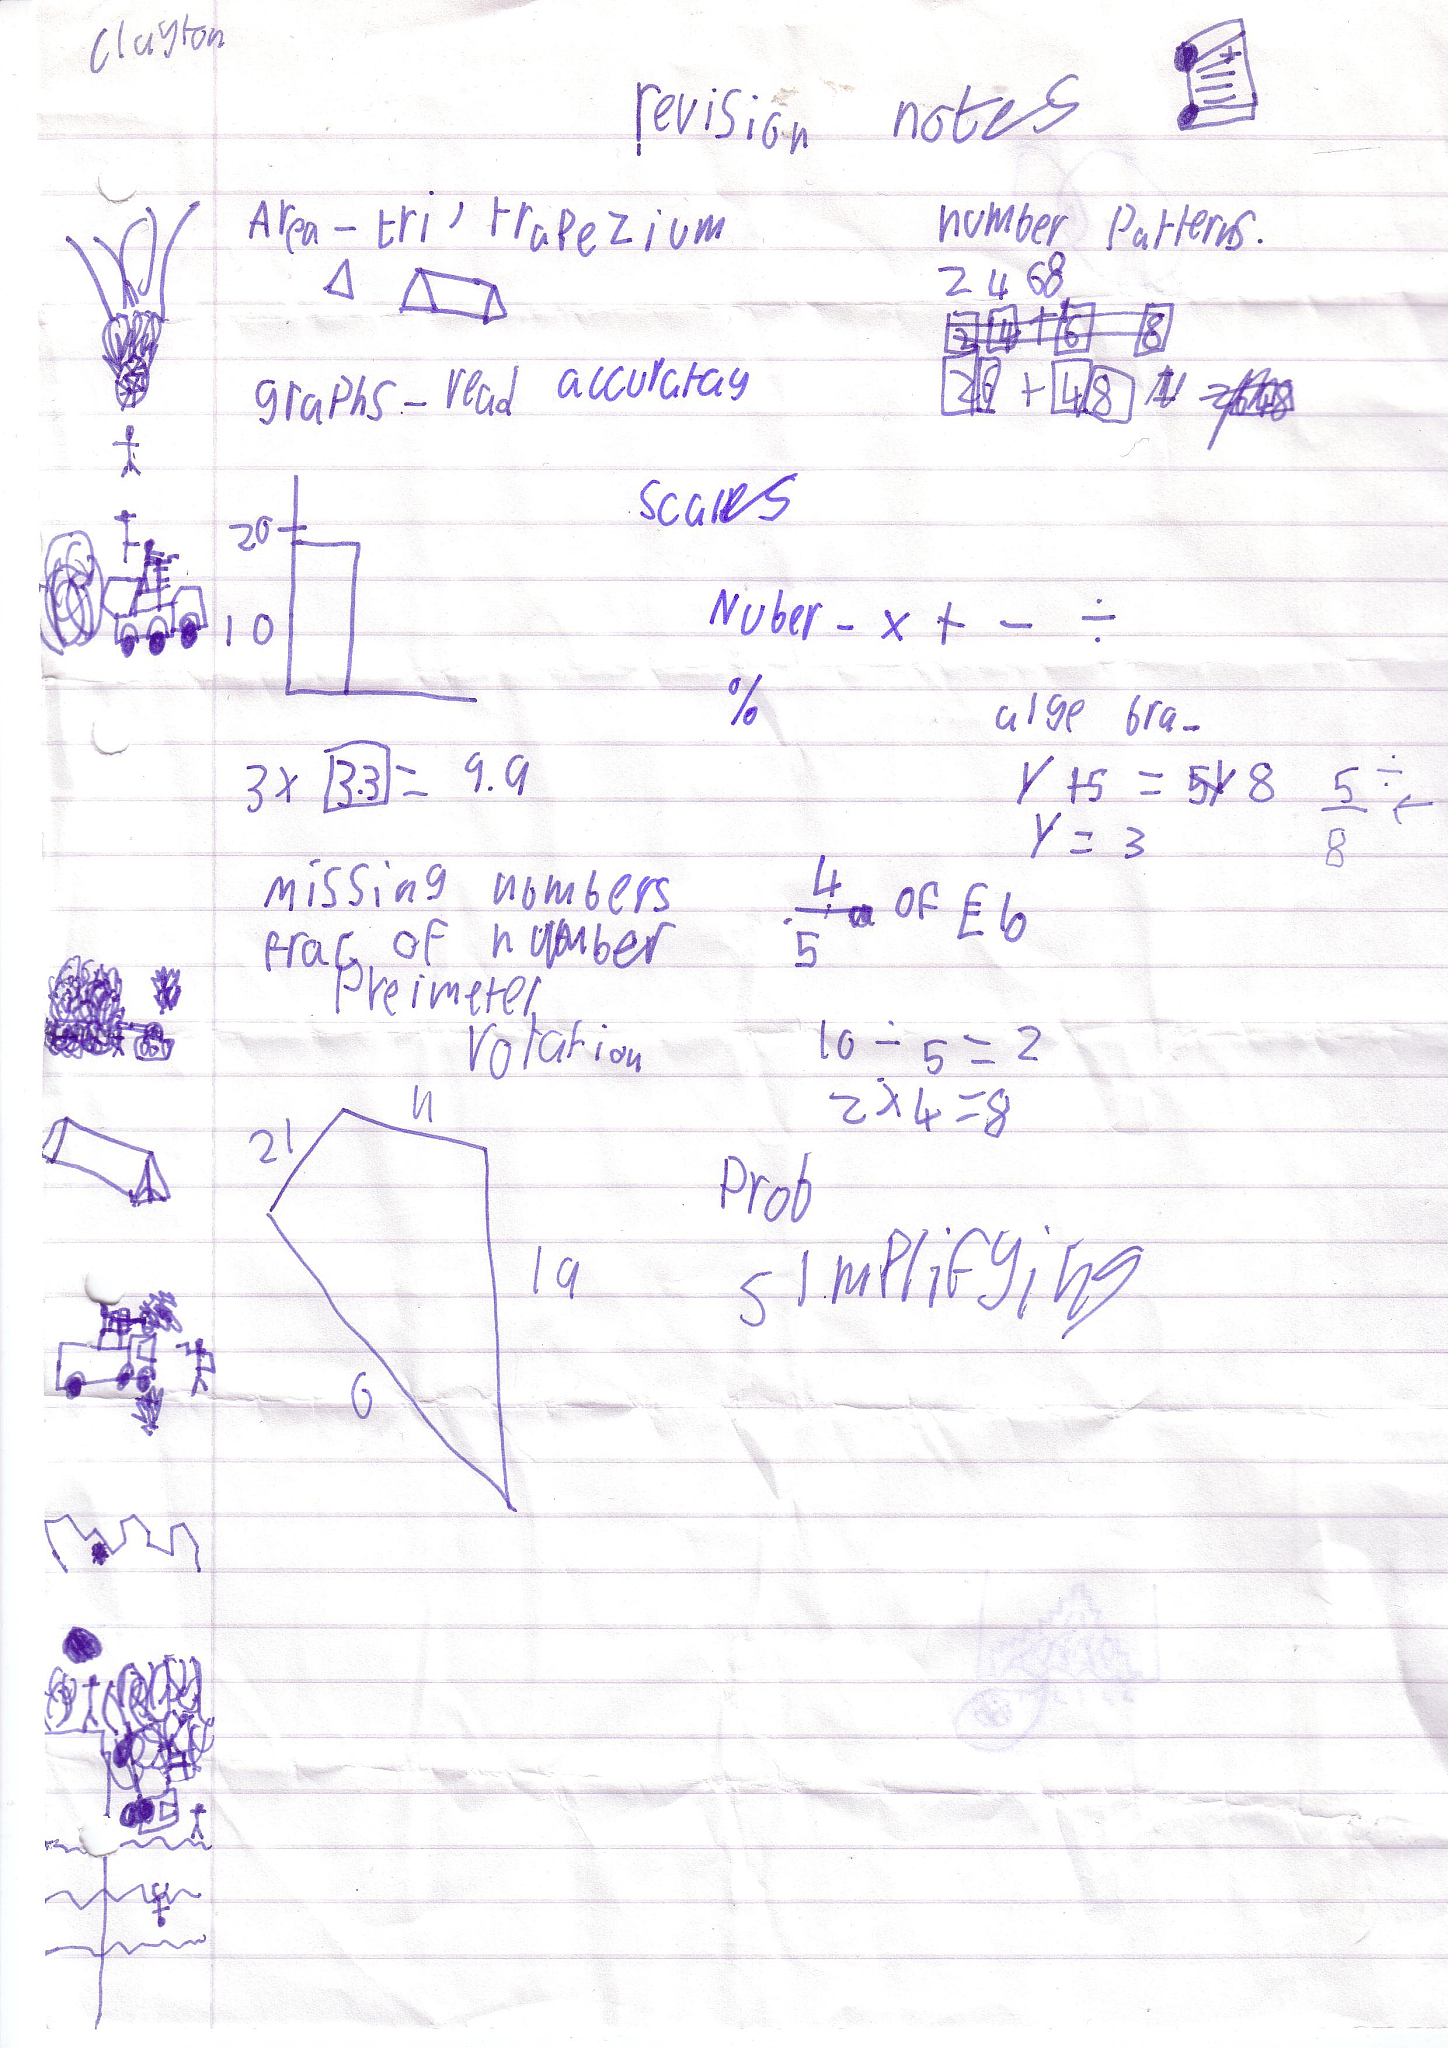 Clayton
revision notes
Area - tri, trapezium
number patterns.
2 4 6 8
2 4 + 6 8
graphs - read
+ 4 8
scales
20
10
Nuber - x + - ÷
%
alge bra -
3 x 3.3 = 9.9
y + 5 = 8
y = 3
5 ÷
8
missing numbers
frac of number
4
5
of
Preimeter
rotation
10 ÷ 5 = 2
2 x 4 = 8
21
Prob
19
simplifying
6